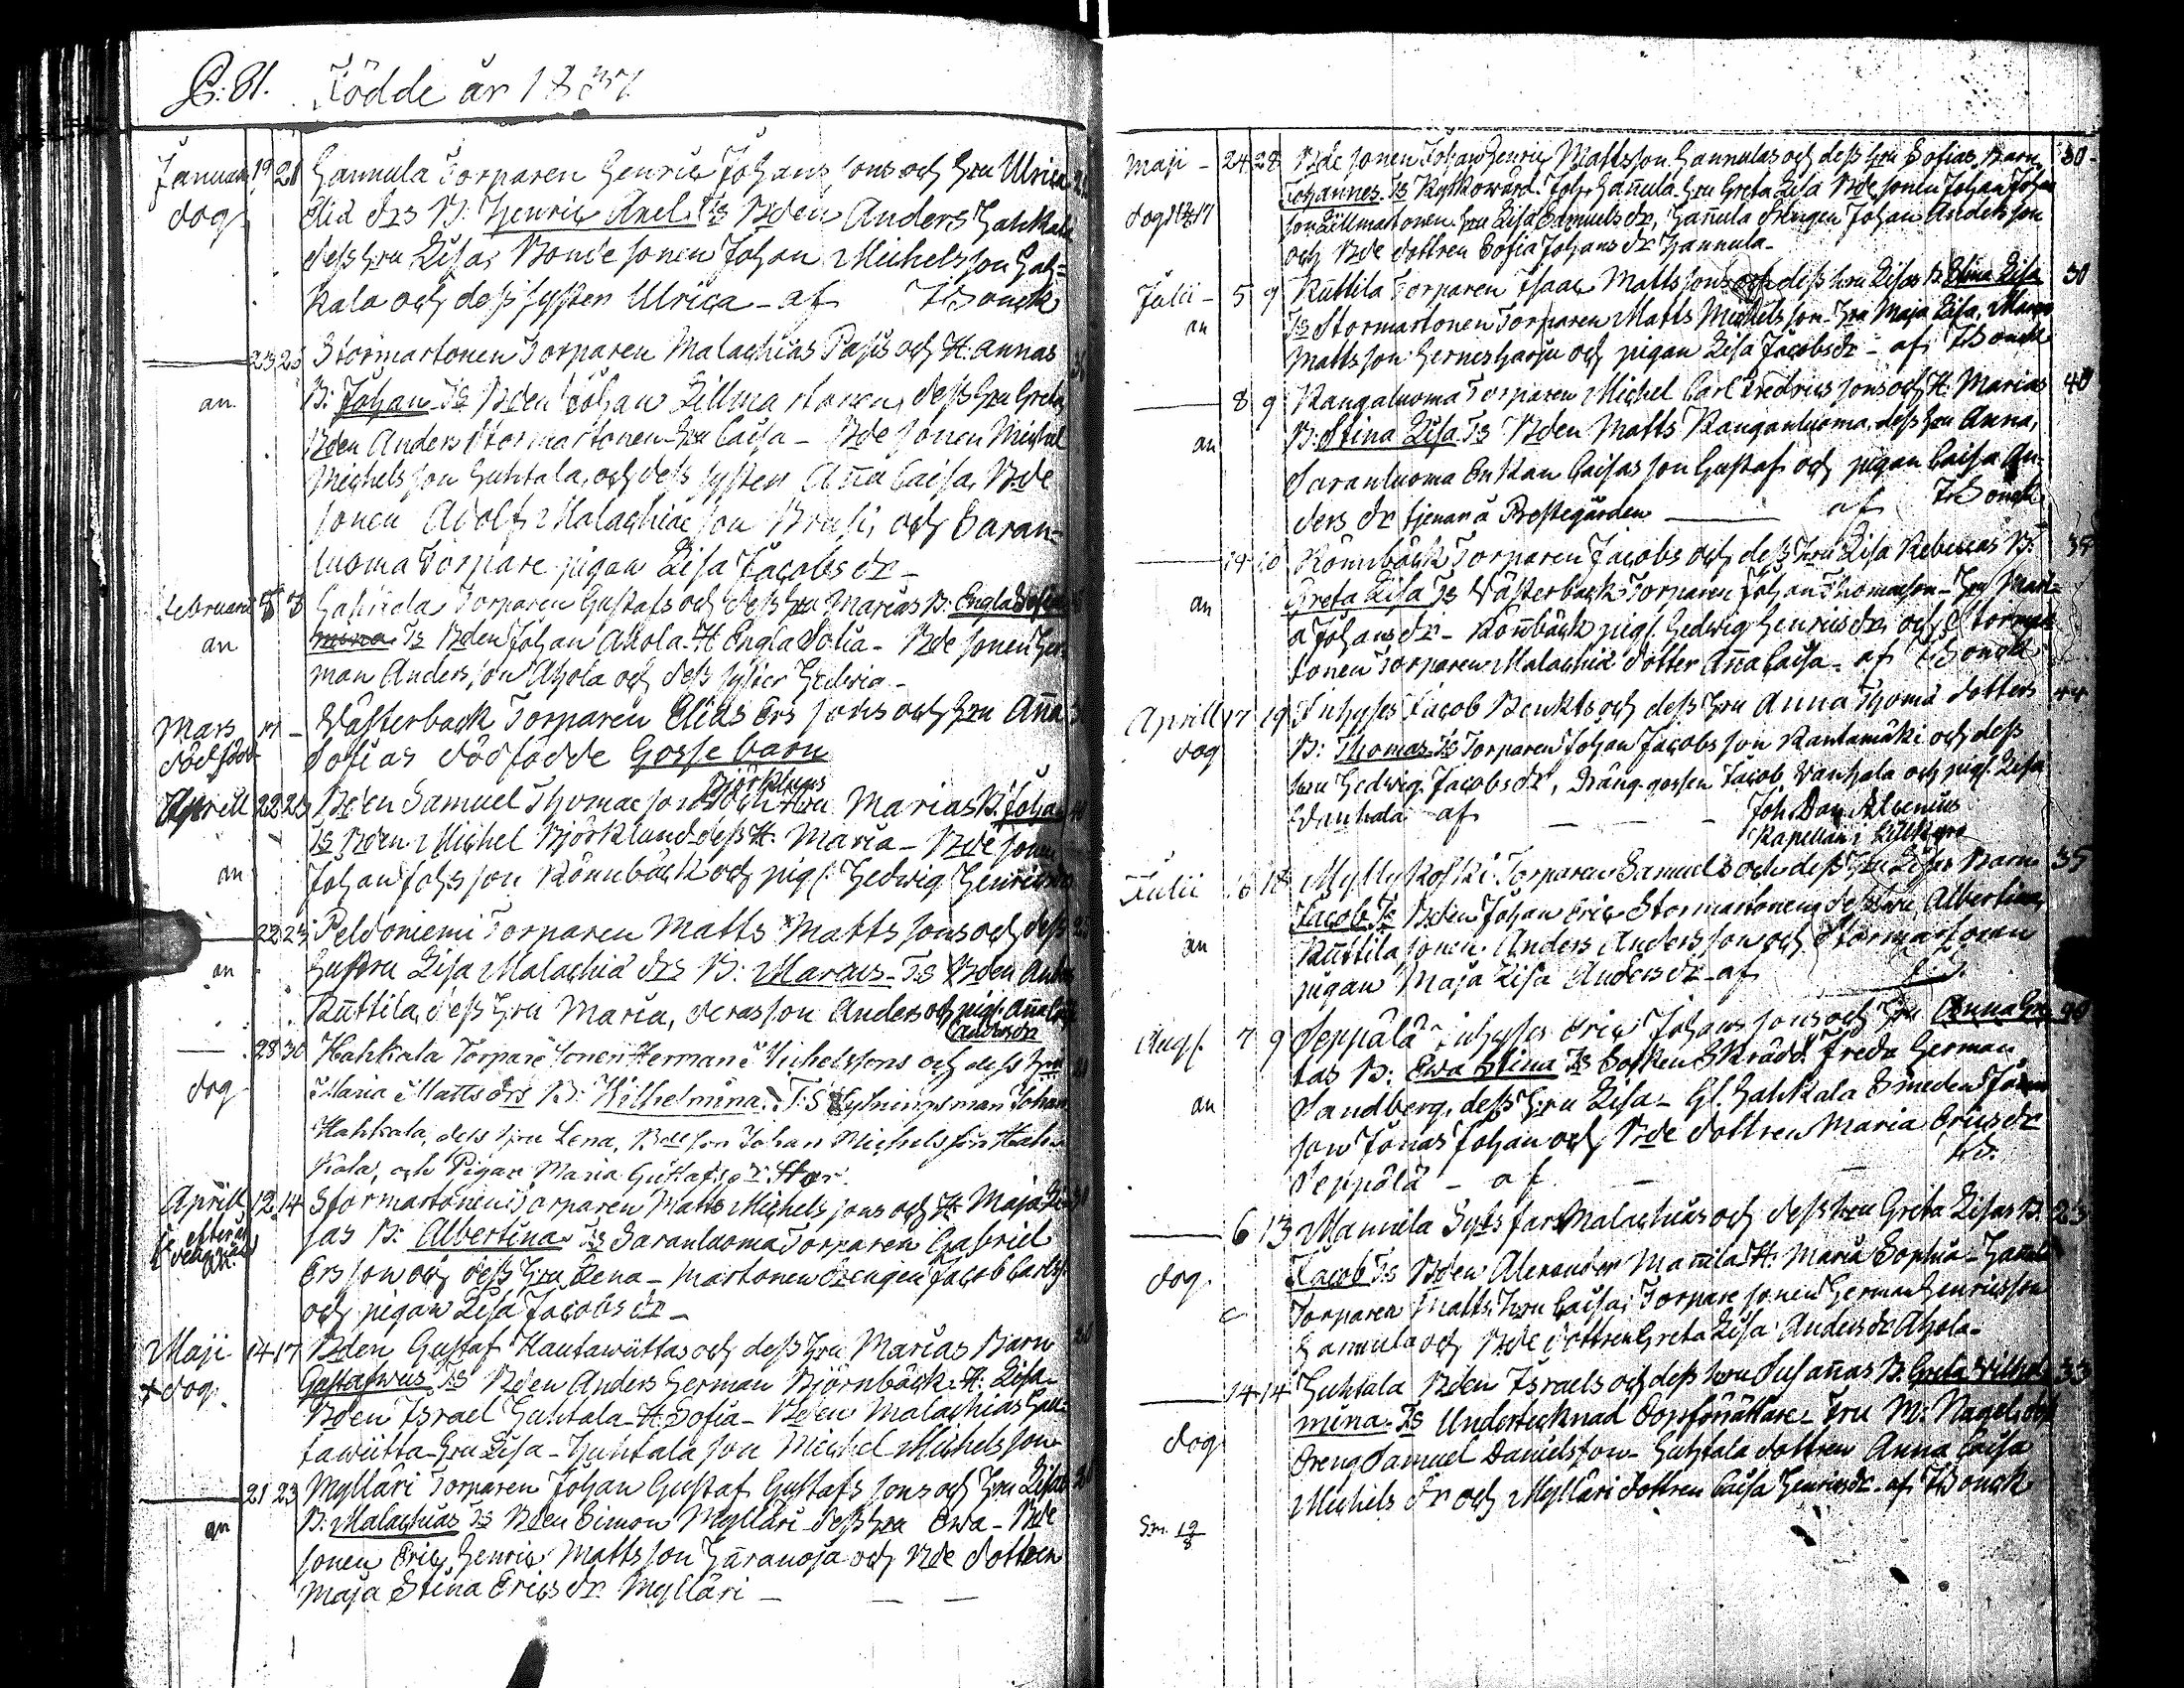 Födde år 1837
Januari 19 21 Hannula Torparen Henric Johans sons och Hru Ulrica
dog Elia drs B: Henric Axel. Ts Bden Anders Hahkala
dess Hru Lisa, Bonde sonen Johan Michelsson Hah=
kala och dess syster Ulrica - af
23 25 Stormartonen Torparen Malachias Pasis och H: Annas
an. B: Johan Ts Bden Johan Lillmartonen, dess Hru Greta
Bden Anders Stormartonen Hru Caisa - Bde sonen Michel
Michels son Huhtala, och dess syster Anna Caisa, Bde
sonen Adolf Malachiae son och Saran=
luoma Torpare pigan Lisa Jacobs dr -
Februarii 8 Torparen Gustafs och dess Hru Marias B: Engla Sofia
an mina Ts Bden Johan Ahola H Engla Sofia - Bde sonen Her=
man Anders son Ahola och dess syster Hedvig -
Mars Västerback Torparen Elias Ers sons och Hru Anna
dödfödd Sofias dödfödde Gosse barn
Björklunds
April 22 23 Bden Samuel Thomae sons och Hru Marias B: Johan
Ts Bden Michel Björklund dess H: Maria - Bde sonen
an Johan Johs son Rönnbäck och pig. Hedwig Henricsdr
22 23 Peldoniemi Torparen Matts Matts sons och dess
an Hustru Lisa Malachiae drs B: Marcus - Ts Bden Anders
Ruttila, dess Hru Maria, deras son Anders och pig. Anna
Andersdr
28 30 Hahkala Torpare Sonen Herman Michelssons och dess Hru
dog Maria Matts drs B: Wilhelmina. T:s Johan
Hahkala, dess Hru Lena, Bde son Johan Michelsson Hah=
kala, och Pigan Maria Gustafsdr
April 12 14 Stormartonen Torparen Matts Michels sons och H: Maja Li=
efter sas B: Albertina Ts Saranluoma Torparen Gabriel
an. Ers son och dess Hru Lena - Martonen Drengen Jacob Carls
och pigan Lisa Jacobs dr -
Maji 14 17 Bden Gustaf Hautawiittas och dess Hru Marias Barn
dog. Gustafwus Ts Bden Anders Herman Björnbäck H: Lisa -
Bden Israel Huhtala H Sofia - Bden Malachias Hau=
tawiitta Hru Lisa - Huhtala son Michel Michels son
21 23 Mylläri Torparen Johan Gustaf Gustafs sons och Hru Lisas
an B: Malachias Ts Bden Simon Mylläri dess Hru Ewa - Bde
sonen Eric Henric Matts son Haranoja och Bde dottren
Maja Stina Erics dr Mylläri -
Maji - 24 28 Bde sonen Johan Henric Mattsson Hannulas och dess Hru Sofias Barn 30
Johannes. Ts Kyrkowärd. Joh. Hannula Hru Greta Lisa Bde sonen Johan Johan
dog son Lillmartonen Hru Lisa Samuels dr, Hannula Drengen Johan Anders son
och Bde dottren Sofia Johans dr Hannula -
Julii - 5 9 Ruttila Torparen Isaac Matts sons och dess Hru Lisas B Stina Lisa 30
an Ts Stormartonen Torparen Matts Michels son Hru Maja Lisa,
Matts son Herneshaiju och pigan Lisa Jacobsdr - af
8 9 Kangaluoma Torparen Michel Carl Fredrics sons och H: Marias 40
an B: Stina Lisa. Ts Bden Matts Kangasluoma, dess Hru Anna,
Saranluoma Enkan Caisas son Gustaf och pigan Caisa An=
ders dr tjenar å Prestegården af
14 10 Rönnbäck Torparen Jacobs och dess Hru Lisa Rebeccas B:
an Greta Lisa Ts Västerback Torparen Johan Thomasson - Hru Mari=
a Johans dr - Rönnbäck pig. Hedwig Henrics dr, och Stormar=
tonen Torparen Malachiae dotter Anna Caisa - af
Aprill 17 19 Inhyses Jacob Benkts och dess Hru Anna Thomae dotters 44
dog B: Thomas. Ts Torparen Johan Jacobs son Rantamäki och dess
Hru Hedwig Jacobsdr, Dräng gossen Jacob Vanhala och pig. Lisa
Vanhala af Joh: Dan Alcenius
Kapellan i
Julii 16 18 Myllykoski Torparen Samuels och dess Hru Lisas Barn 35
Jacob Ts Bden Johan Eric Stormartonen, dess Hru Albertina,
an Ruttila sonen Anders Anders son och Stormartonen
pigan Maja Lisa Anders dr af
Aug. 7 9 Seppälä inhyses Eric Johans sons och Hru Anna Gre=
tas B: Ewa Stina Ts Socken Skrädd. Fredr Herman
an Sandberg, dess Hru Lisa - Gl. Hahkala Smeden
son Jonas Johan och Bde dottren Maria Erics dr
Seppälä - af
6 13 Mannila Syts far Malachias och dess Hru Greta Lisas B. 23
dog. Jacob Ts Bden Alexander Mannila H: Maria Sophia - Hannula
Torparen Matts Hru Caisa, Torpare sonen Herman Henricsson
Hannula och Bde dottren Greta Lisa Anders dr Ahola -
14 14 Huhtala Bden Israels och dess Hru Susannas B. Greta Vilhel= 33
mina. Ts Undertecknad Fru M: Nagel,
dog Dreng Samuel Danielsson - Huhtala dottren Anna Caisa
Michels dr och Mylläri dottren Caisa Henricsdr - af